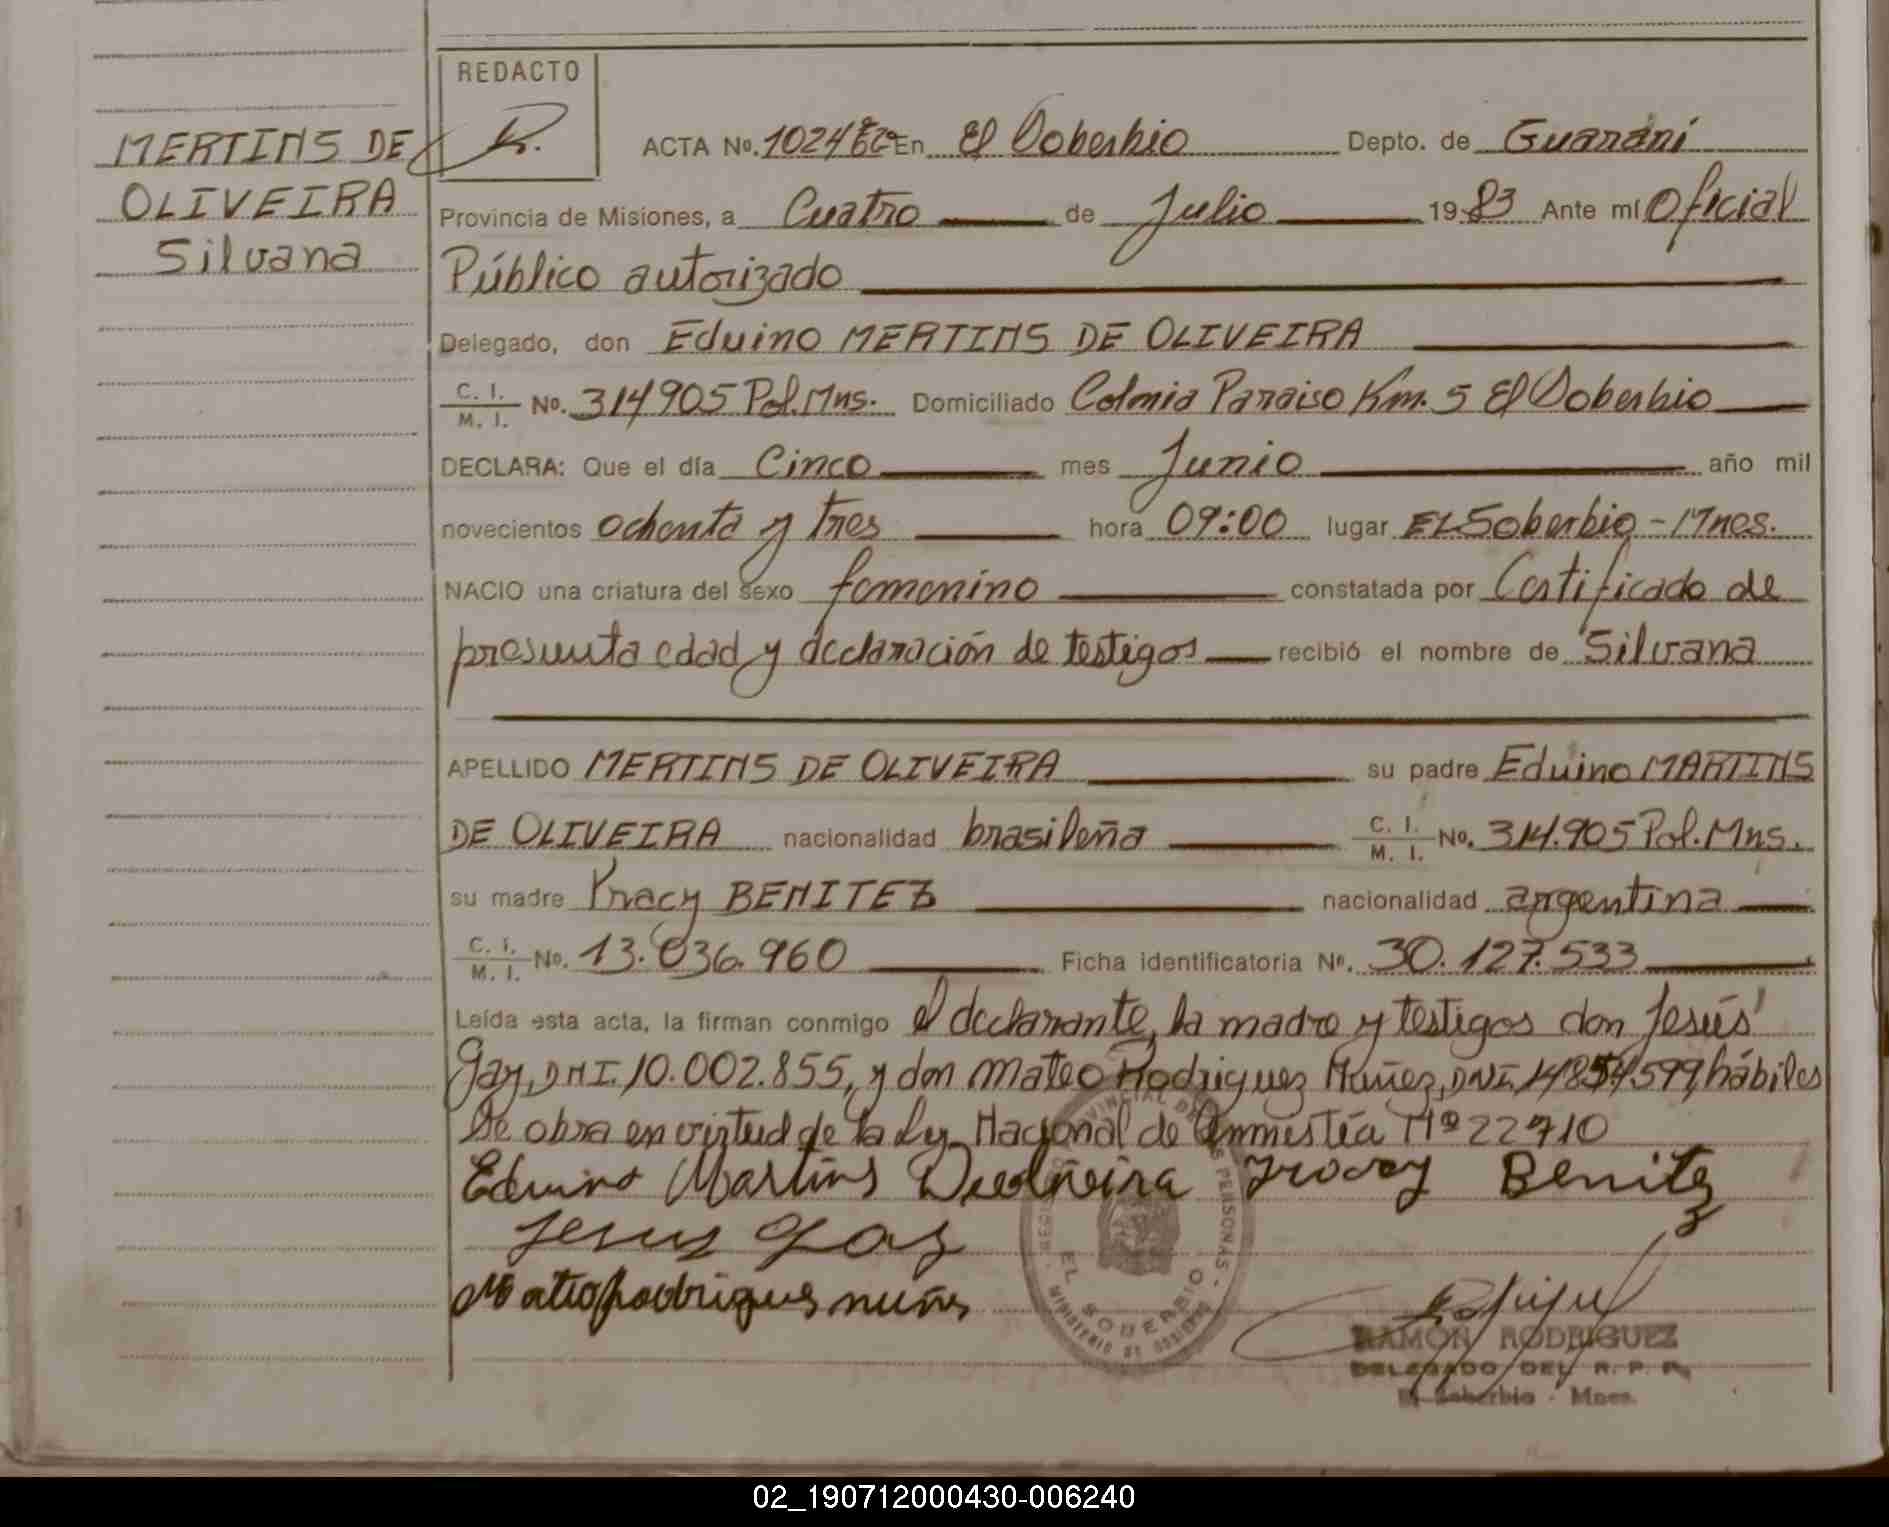 REDACTO
R.
MERTINS DE
OLIVEIRA
Silvana
ACTA No. 1024 En El Soberbio Depto. de Guaraní
Provincia de Misiones, a Cuatro de Julio 1983 Ante mí Oficial
Público autorizado
Delegado, don Eduino MERTINS DE OLIVEIRA
C. I.
M. I. No. 314905 Pol. Mns. Domiciliado Colonia Paraiso Km. 5 El Soberbio
DECLARA: Que el día Cinco mes Junio año mil
novecientos ochenta y tres hora 09:00 lugar EL Soberbio - Mnes.
NACIO una criatura del sexo femenino constatada por Certificado de
presunta edad y declaración de testigos recibió el nombre de Silvana
APELLIDO MERTINS DE OLIVEIRA su padre Eduino MARTINS
DE OLIVEIRA nacionalidad brasileña C. I.
M. I. No. 314.905 Pol. Mns.
su madre Yracy BENITEZ nacionalidad argentina
C. I.
M. I. No. 13.036.960 Ficha identificatoria No. 30.127.533
Leída esta acta, la firman conmigo el declarante, la madre y testigos don Jesús
Gay, DNI. 10.002.855, y don Mateo Rodriguez Nuñez, DNI. hábiles
Se obra en virtud de la Ley Nacional de Amnestía Nº 22710
Eduino Martins Deolineira Benitez
Jesus Gay
Matio Rodrigues nuñes
REGISTRO PROVINCIAL DE LAS PERSONAS
EL SOBERBIO
MINISTERIO DE GOBIERNO
RAMON RODRIGUEZ
DELEGADO DEL R. P. P.
El Soberbio - Mnes.
02_190712000430-006240